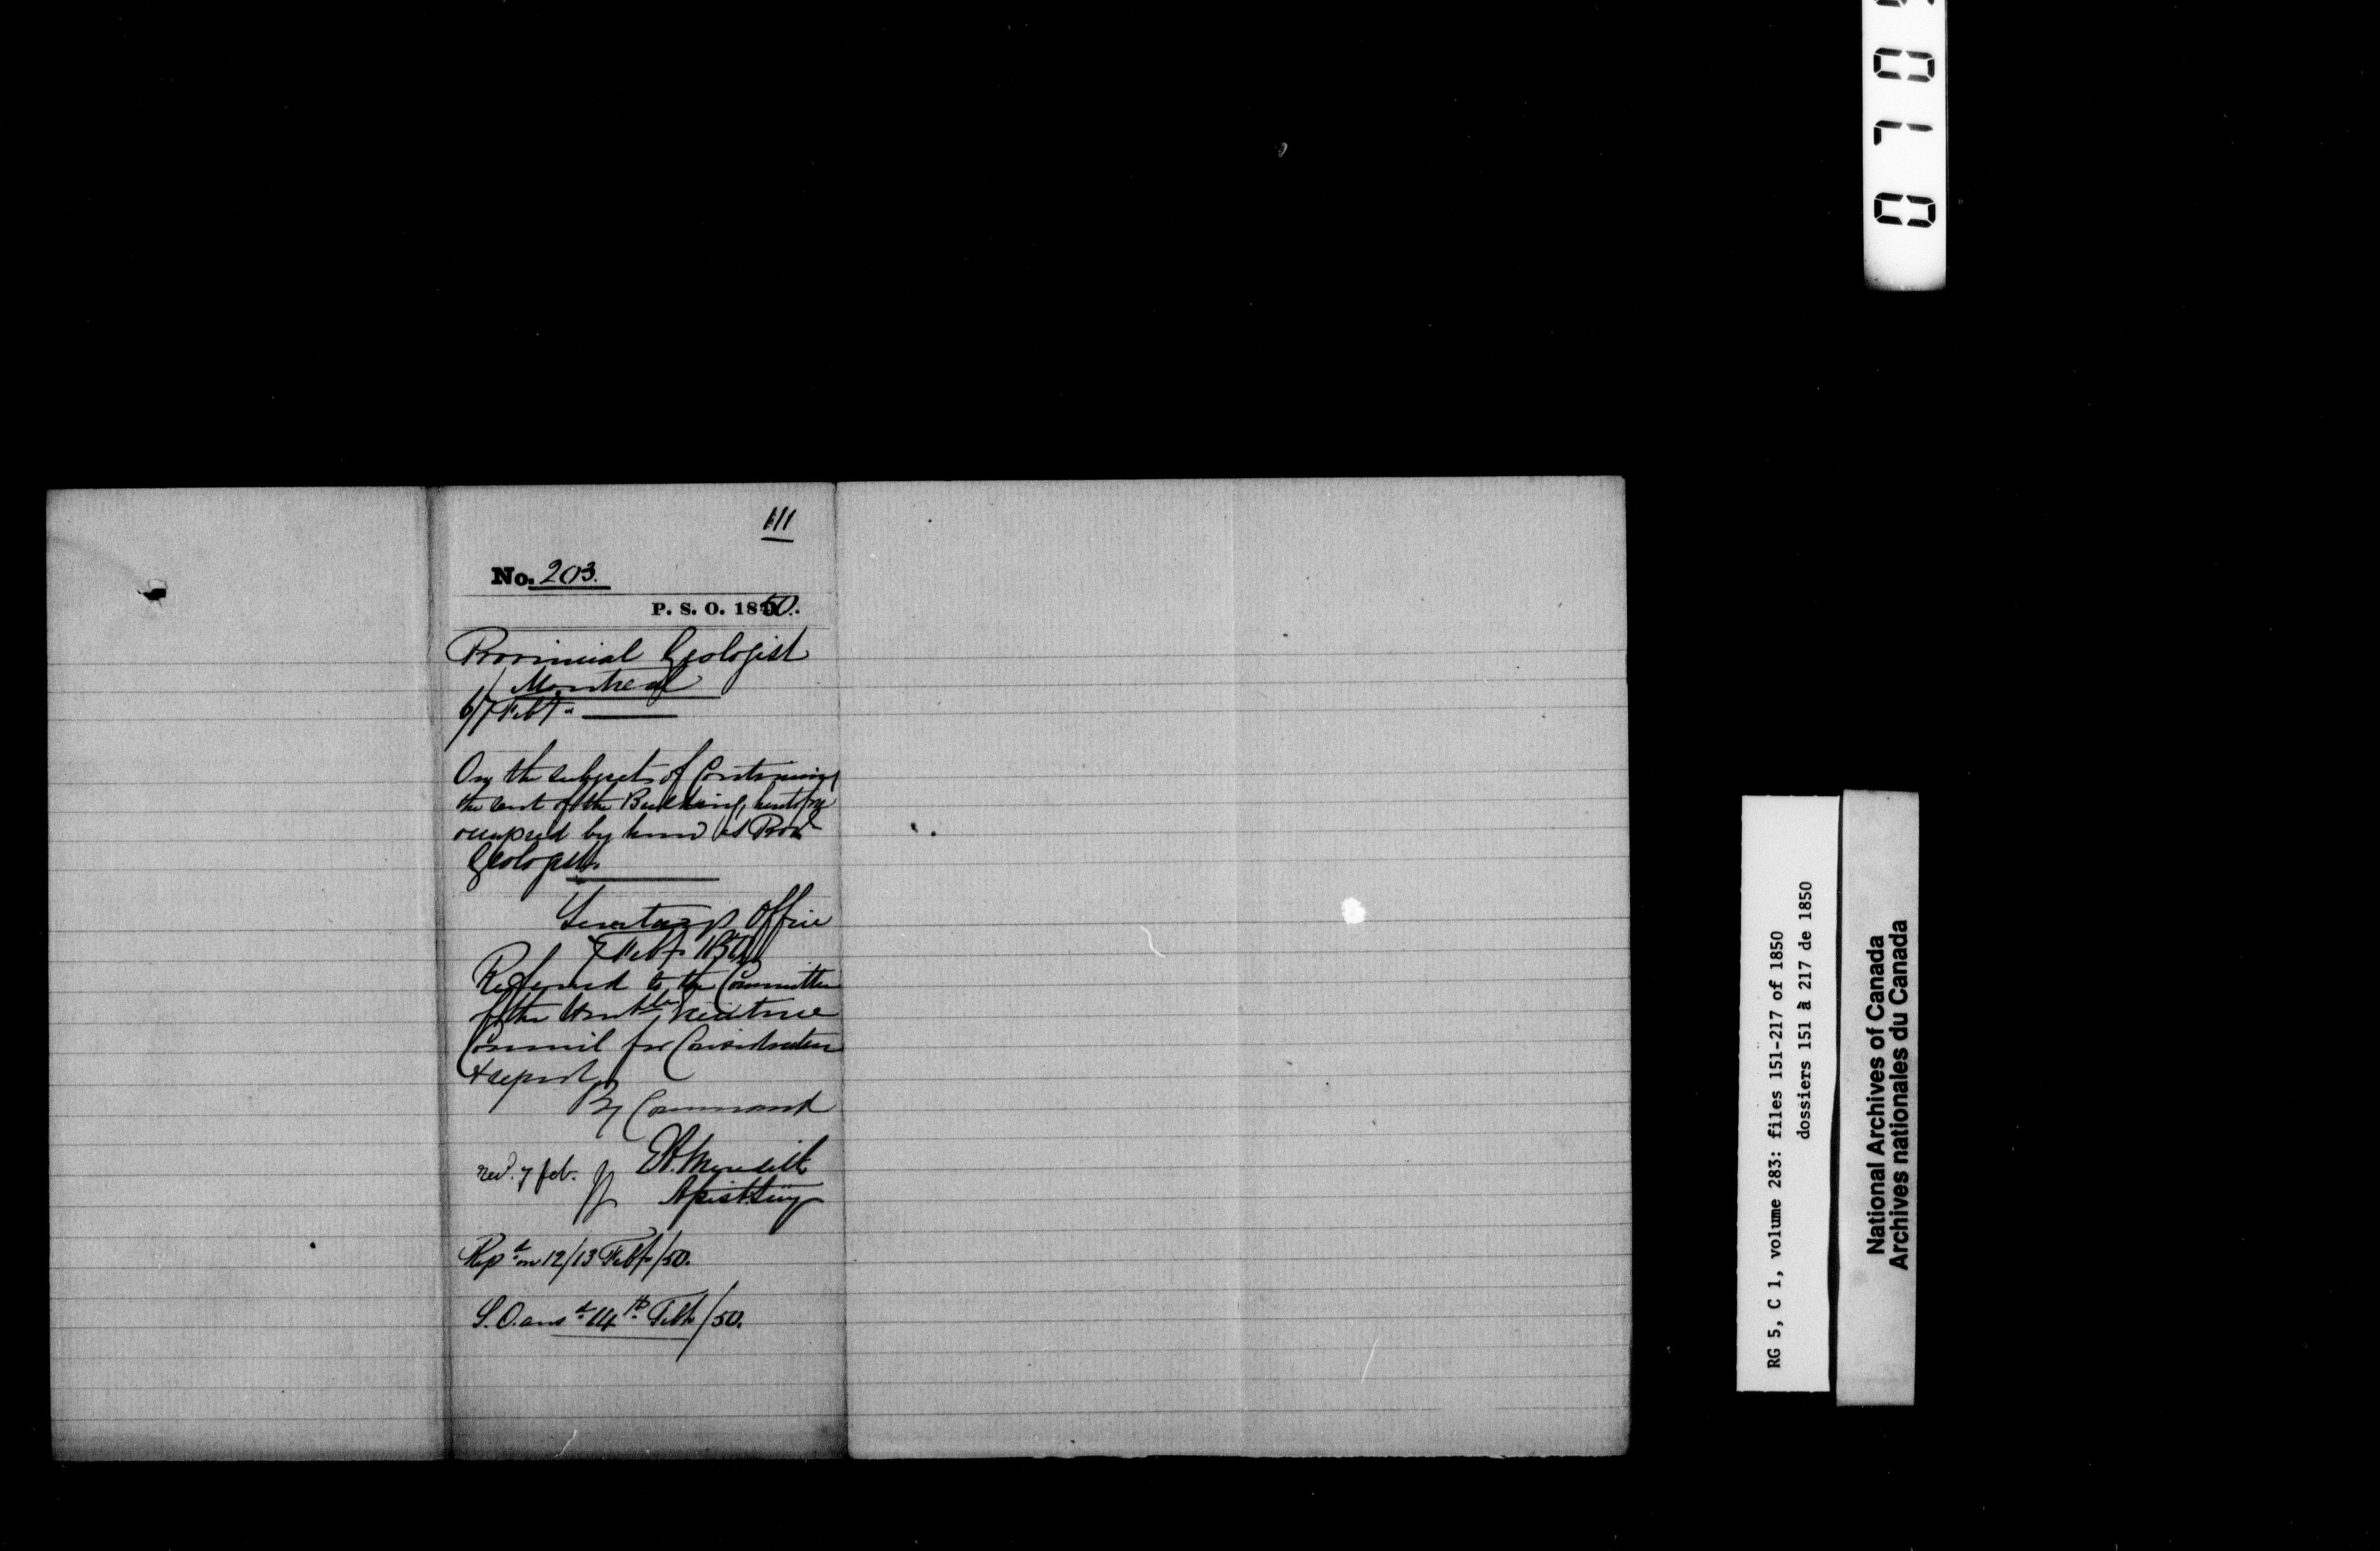 111
No. 203.
P. S. O. 1850.
Provincial Geologist
Montreal
6/7 Feby "
On the subject of Continuing
the rent of the Building heretofore
occupied by him as Provl
Geologist.
Secretary's Office
7 Feby 1850
Referred to the Committee
of the Honble Executive
Council for Consideration
& report.
By Command
E. A. Meredith
recd. 7 feb.
Asist Secy
Repd on 12/13 Feby/50.
L. O. ansd 14th Feb/50.
0705
RG 5, C 1, volume 283: files 151-217 of 1850
dossiers 151 à 217 de 1850
National Archives of Canada
Archives nationales du Canada